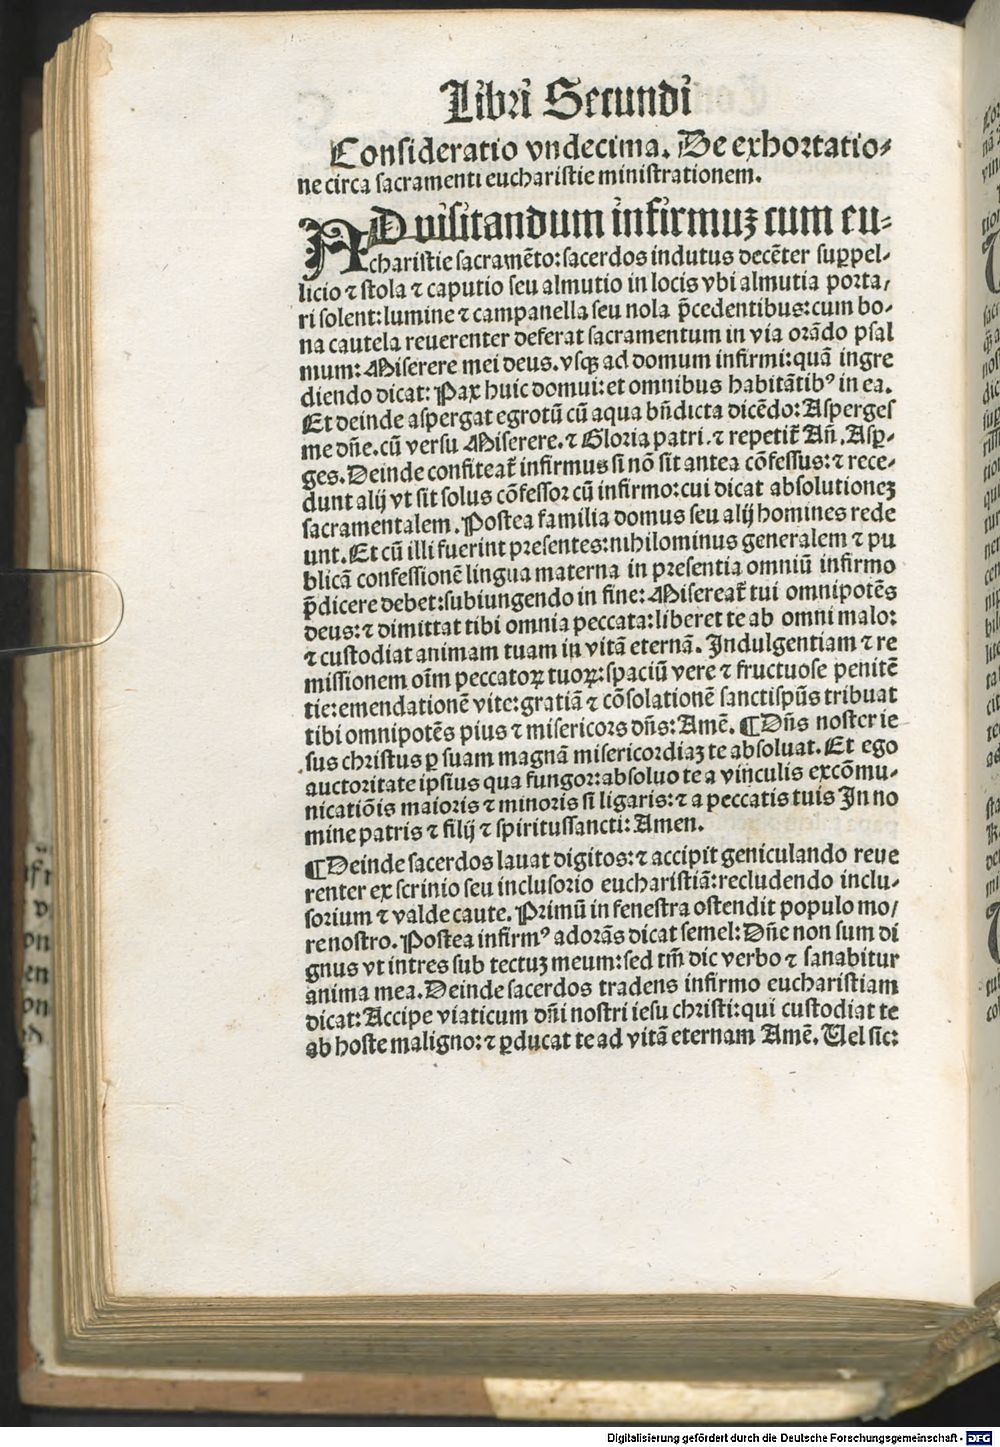 Libri Secundi
Consideratio vndecima. De exhortatio⸗
ne circa sacramenti eucharistie ministrationem.
AD visitandum infirmuꝫ cum eu⸗
charistie sacramēto: sacerdos indutus decēter suꝑpel⸗
licio ⁊ stola ⁊ caputio seu almutio in locis vbi almutia porta/
ri solent: lumine ⁊ campanella seu nola p̄cedentibus: cum bo⸗
na cautela reuerenter deferat sacramentum in via orādo psal
mum: Miserere mei deus. vsqꝫ ad domum infirmi: quā ingre
diendo dicat: Pax huic domui: et omnibus habitātibꝰ in ea.
Et deinde aspergat egrotū cū aqua bn̄dicta dicēdo: Asperges
me dn̄e. cū versu Miserere. ⁊ Gloria patri. ⁊ repetit᷑ An̄. Asꝑ⸗
ges. Deinde confiteat᷑ infirmus si nō sit antea cōfessus: ⁊ rece⸗
dunt alij vt sit solus cōfessor cū infirmo: cui dicat absolutioneꝫ
sacramentalem. Postea familia domus seu alij homines rede
unt. Et cū illi fuerint presentes: nihilominus generalem ⁊ pu
blicā confessionē lingua materna in presentia omniū infirmo
p̄dicere debet: subiungendo in fine: Misereat᷑ tui omnipotēs
deus: ⁊ dimittat tibi omnia peccata: liberet te ab omni malo:
⁊ custodiat animam tuam in vitā eternā. Indulgentiam ⁊ re
missionem oīm peccatoꝝ tuoꝝ: spaciū vere ⁊ fructuose penitē
tie: emendationē vite: gratiā ⁊ cōsolationē sanctispūs tribuat
tibi omnipotēs pius ⁊ misericors dn̄s: Amē. ¶ Dn̄s noster ie
sus christus ꝑ suam magnā misericordiaꝫ te absoluat. Et ego
auctoritate ipsius qua fungor: absoluo te a vinculis excōmu⸗
nicatiōis maioris ⁊ minoris si ligaris: ⁊ a peccatis tuis In no
mine patris ⁊ filij ⁊ spiritussancti: Amen.
¶ Deinde sacerdos lauat digitos: ⁊ accipit geniculando reue
renter ex scrinio seu inclusorio eucharistiā: recludendo inclu⸗
sorium ⁊ valde caute. Primū in fenestra ostendit populo mo/
re nostro. Postea infirmꝰ adorās dicat semel: Dn̄e non sum di
gnus vt intres sub tectuꝫ meum: sed tm̄ dic verbo ⁊ sanabitur
anima mea. Deinde sacerdos tradens infirmo eucharistiam
dicat: Accipe viaticum dn̄i nostri iesu christi: qui custodiat te
ab hoste maligno: ⁊ ꝑducat te ad vitā eternam Amē. Uel sic:
Digitalisierung gefördert durch die Deutsche Forschungsgemeinschaft - DFG